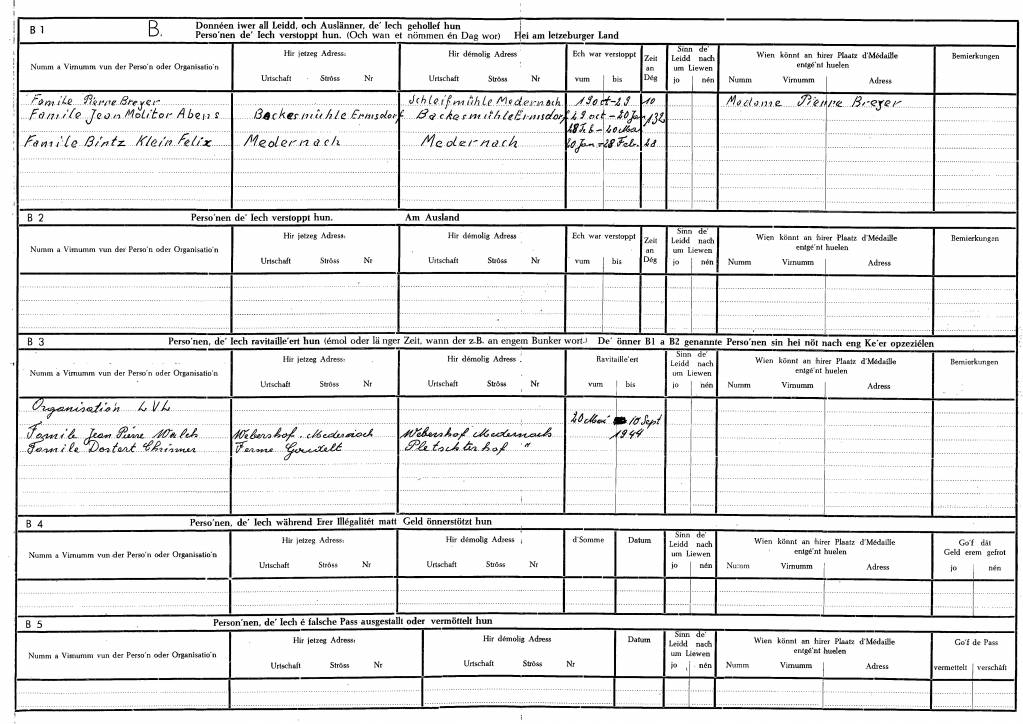 B 1 B. Donnéen iwer all Leidd, och Auslänner, de' Iech gehollef hun
Perso'nen de' Iech verstoppt hun. (Och wan et nömmen én Dag wor) Hei am letzeburger Land
Numm a Virnumm vun der Perso'n oder Organisatio'n
Hir jetzeg Adress:
Urtschaft Ströss Nr
Hir démolig Adress
Urtschaft Ströss Nr
Ech war verstoppt
vum bis
Zeit
an
Dég
Sinn de'
Leidd nach
um Liewen
jo nén
Wien könnt an hirer Plaatz d'Médaille
entgé'nt huelen
Numm Virnumm Adress
Bemierkungen
Famile Pierre Breyer Schleifmühle Medernach 19 oct-29 10 Madame Pierre Breyer
Famile Jean Molitor Abens Backesmühle Ermsdorf Backesmühle Ermsdorf 29 oct - 20 Jan 132
28 Feb - 20 Mai
Famile Bintz Klein Felix Medernach Medernach 20 Jan - 28 Feb. 28
B 2 Perso'nen de' Iech verstoppt hun. Am Ausland
Numm a Virnumm vun der Perso'n oder Organisatio'n
Hir jetzeg Adress:
Urtschaft Ströss Nr
Hir démolig Adress
Urtschaft Ströss Nr
Ech war verstoppt
vum bis
Zeit
an
Dég
Sinn de'
Leidd nach
um Liewen
jo nén
Wien könnt an hirer Plaatz d'Médaille
entgé'nt huelen
Numm Virnumm Adress
Bemierkungen
B 3 Perso'nen, de' Iech ravitaille'ert hun (émol oder länger Zeit, wann der z.B. an engem Bunker wort.) De' önner B1 a B2 genannte Perso'nen sin hei nöt nach eng Ke'er opzeziélen
Numm a Virnumm vun der Perso'n oder Organisatio'n
Hir jetzeg Adress:
Urtschaft Ströss Nr
Hir démolig Adress
Urtschaft Ströss Nr
Ravitaille'ert
vum bis
Sinn de'
Leidd nach
um Liewen
jo nén
Wien könnt an hirer Plaatz d'Médaille
entgé'nt huelen
Numm Virnumm Adress
Bemierkungen
Organisation LVL
20 Mai 10 Sept
Famile Jean Pierre Walch Webershof. Medernach Webershof Medernach 1944
Famile Dostert Chrismer Ferme Goudelt Pletschterhof "
B 4 Perso'nen, de' Iech während Erer Illégalitét matt Geld önnerstötzt hun
Numm a Virnumm vun der Perso'n oder Organisatio'n
Hir jetzeg Adress:
Urtschaft Ströss Nr
Hir démolig Adress
Urtschaft Ströss Nr
d'Somme Datum
Sinn de'
Leidd nach
um Liewen
jo nén
Wien könnt an hirer Plaatz d'Médaille
entgé'nt huelen
Numm Virnumm Adress
Go'f dât
Geld erem gefrot
jo nén
B 5 Person'nen, de' Iech é falsche Pass ausgestallt oder vermöttelt hun
Numm a Virnumm vun der Perso'n oder Organisatio'n
Hir jetzeg Adress:
Urtschaft Ströss Nr
Hir démolig Adress
Urtschaft Ströss Nr
Datum
Sinn de'
Leidd nach
um Liewen
jo nén
Wien könnt an hirer Plaatz d'Médaille
entgé'nt huelen
Numm Virnumm Adress
Go'f de Pass
vermettelt verschâft